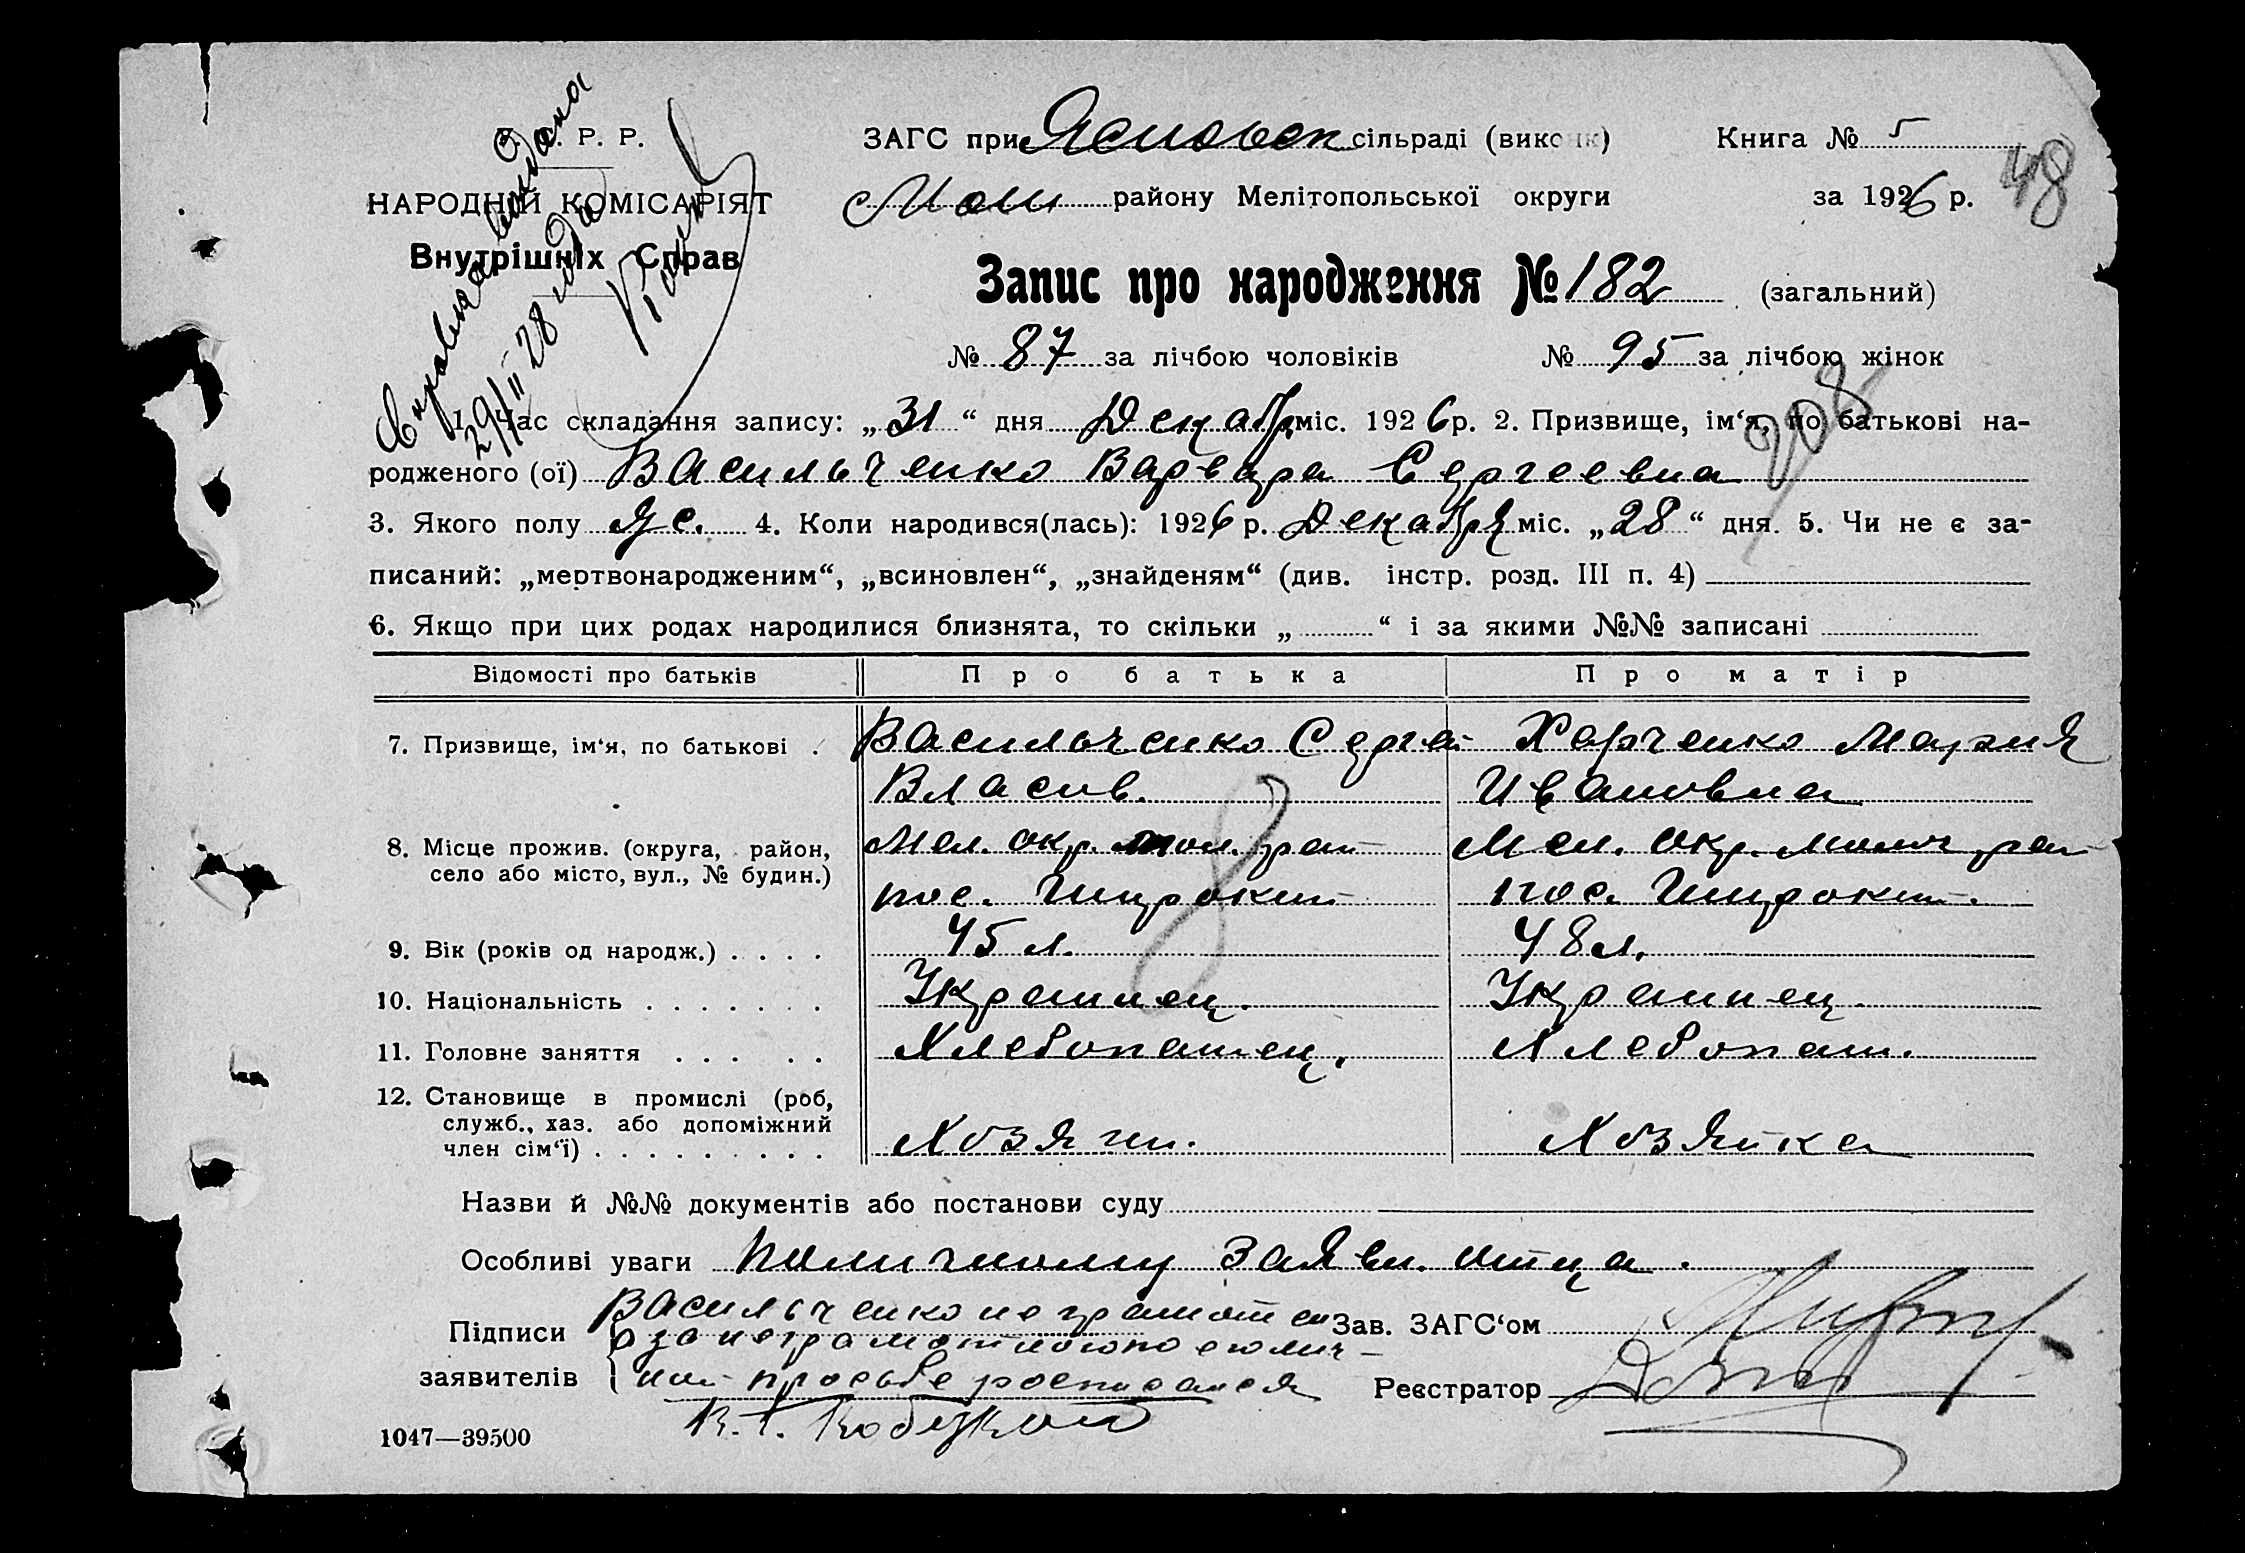 У. С. Р. Р.
НАРОДНІЙ КОМІСАРІЯТ
Внутрішніх Справ
Справка видана
29/II 28 года
ЗАГС при сільраді (виконк)
Мол району Мелітопольської округи
Книга № 5
за 1926 р.
48
Запис про народження № 182 (загальний)
№ 87 за лічбою чоловіків № 95 за лічбою жінок
208
1. Час складання запису: „31“ дня Декабр міс. 1926 р. 2. Призвище, ім‘я, по батькові на-
родженого (ої) Васильченко Варвара Сергеевна
3. Якого полу же. 4. Коли народився(лась): 1926 р. Декабря міс. „28“ дня. 5. Чи не є за-
писаний: „мертвонародженим“, „всиновлен“, „знайденям“ (див. інстр. розд. III п. 4)
6. Якщо при цих родах народилися близнята, то скільки „ “ і за якими №№ записані
Відомості про батьків Про батька Про матір
7. Призвище, ім‘я, по батькові . Васильченко Сергей Харченко Мария
Власов. Ивановна
8. Місце прожив. (округа, район, Мел. окр. мол. рай Мел. окр. молоч рай
село або місто, вул., № будин.) пос. Широкий пос. Широкий.
9. Вік (років од народж.) . . . . 45 л. 48 л.
8
10. Національність . . . . . . . Украинец. Украинец.
11. Головне заняття . . . . . Хлебопашец. Хлебопаш.
12. Становище в промислі (роб,
служб., хаз. або допоміжний
член сім‘ї) . . . . . . . . . Хозяин. Хозяйка
Назви й №№ документів або постанови суду
Особливі уваги По личному заявл. отца.
Підписи заявителів Васильченко не грамотен
а за неграмотного по его лич-
ной просьбе росписался
Зав. ЗАГС‘ом
Реєстратор
1047—39500